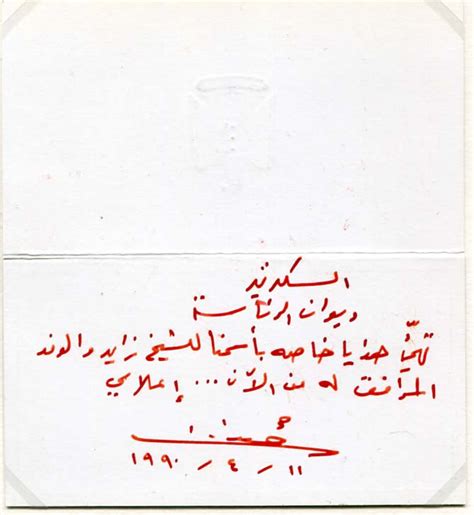 السكرتير
ديوان الرئاسة
تهيّأ هدايا خاصه بأسمنا للشيخ زايد والوفد
المرافق له من الآن ... إعلامي
١٩٩٠ / ٤ / ١١